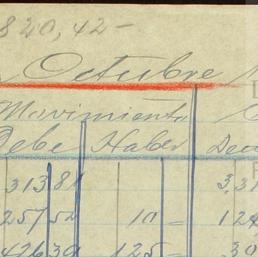 820,42-
Octubre
Movimiento
Debe Haber
313 81
257 52 10 = 124
426 39 125 = 30